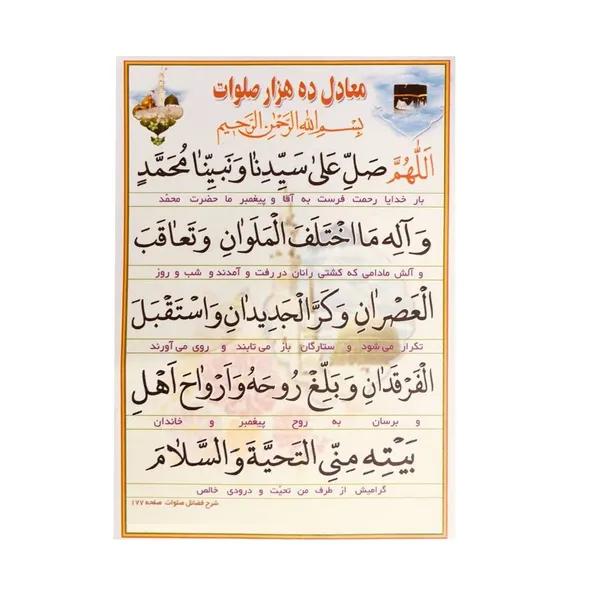 معادل ده هزار صلوات
بِسْمِ اللهِ الرَّحْمٰنِ الرَّحیمِ
اَللّٰهُمَّ صَلِّ عَلیٰ سَیِّدِنٰا وَ نَبِیِّنٰا مُحَمَّدٍ
بار خدایا رحمت فرست به آقا و پیغمبر ما حضرت محمد
وَ آلِهِ مَا اخْتَلَفَ الْمَلَوٰانِ وَ تَعٰاقَبَ
و آلش مادامی که کشتی رانان در رفت و آمدند و شب و روز
الْعَصْرٰانِ وَ کَرَّ الْجَدیدٰانِ وَ اسْتَقْبَلَ
تکرار می شود و ستارگان باز می تابند و روی می آورند
الْفَرْقَدٰانِ وَ بَلِّغْ رُوحَهُ وَ اَرْوٰاحَ اَهْلِ
و برسان به روح پیغمبر و خاندان
بَیْتِهِ مِنِّی التَّحِیَّةَ وَ السَّلٰامَ
گرامیش از طرف من تحیّت و درودی خالص
شرح فضائل صلوات صفحه ۱۷۷